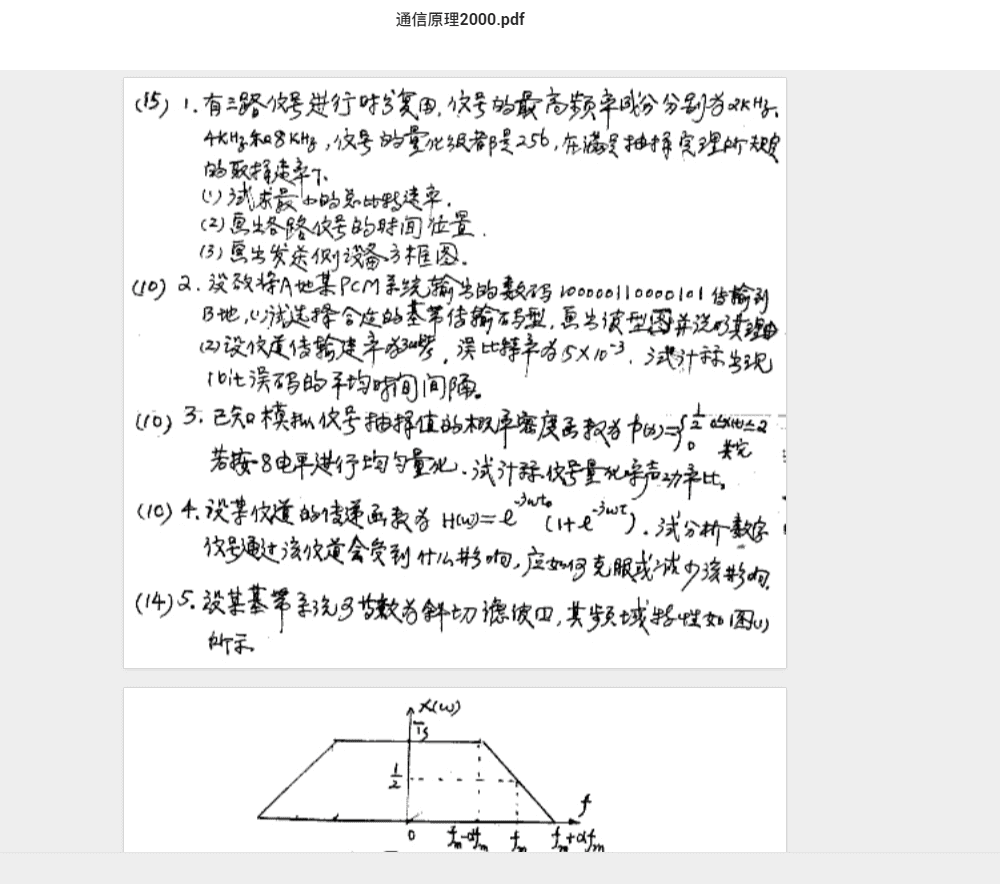 通信原理2000.pdf
(15) 1. 有三路信号进行时分复用, 信号的最高频率成分分别为2KHz、
4KHz和8KHz, 信号的量化级都是256, 在满足抽样定理所规定
的取样速率下、
(1) 试求最小的总比特速率.
(2) 画出各路信号的时间位置.
(3) 画出发送侧设备方框图。
(10) 2. 设欲将A地某PCM系统输出的数码100000110000101传输到
B地, (1)试选择合适的基带传输码型, 画出波型图并说明其理由
(2)设信道传输速率为, 误比特率为5×10⁻³. 试计算出现
1bit误码的平均时间间隔。
(10) 3. 已知模拟信号抽样值的概率密度函数为 p(x)={ 1/2 0≤x(t)≤2
0 其它
若按8电平进行均匀量化. 试计算信号量化噪声功率比。
(10) 4. 设某信道的传递函数为 H(ω)=e^{-jωt₀}(1+e^{-jωτ}). 试分析数字
信号通过该信道会受到什么影响, 应如何克服或减少该影响.
(14) 5. 设某基带系统等效为斜切滤波器, 其频域特性如图(1)
所示。
X(ω)
Ts
1/2
f
0 fm-αfm fm fm+αfm